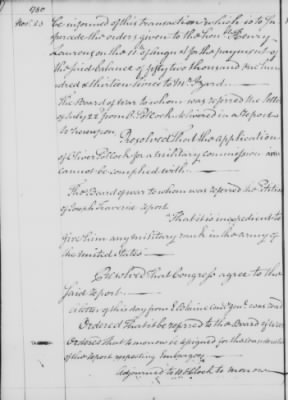 1780
Nov. 23
be informed of this transaction which is to su
persede the orders given to the Hon.ble Henry
Laurens on the 1st of Augst for the payment of
the said balance of fifty two thousand one hun
dred & thirteen livres to Mr Izard.
The Board of war to whom was referred the letter
of July 22d from O. Pollock delivered in a Report
Resolved That the application
of Oliver Pollock for a military commission
cannot be complied with
The Board of war to whom was referred the Petition
of Joseph Traversie report
"That it is inexpedient to
give him any military rank in the army of
the United States
Resolved That Congress agree to the
said report
A letter of this day from E. Blaine com.y gen.l was read
Ordered That it be referred to the Board of war
Ordered That to morrow be assigned for the consideration
of the report respecting embargoes
adjourned to 10 oClock to morrow